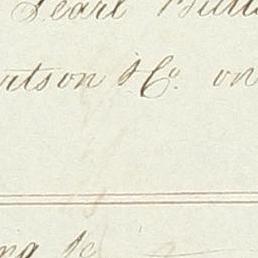 Pearl Butto
rtson & Co. on
ng &c